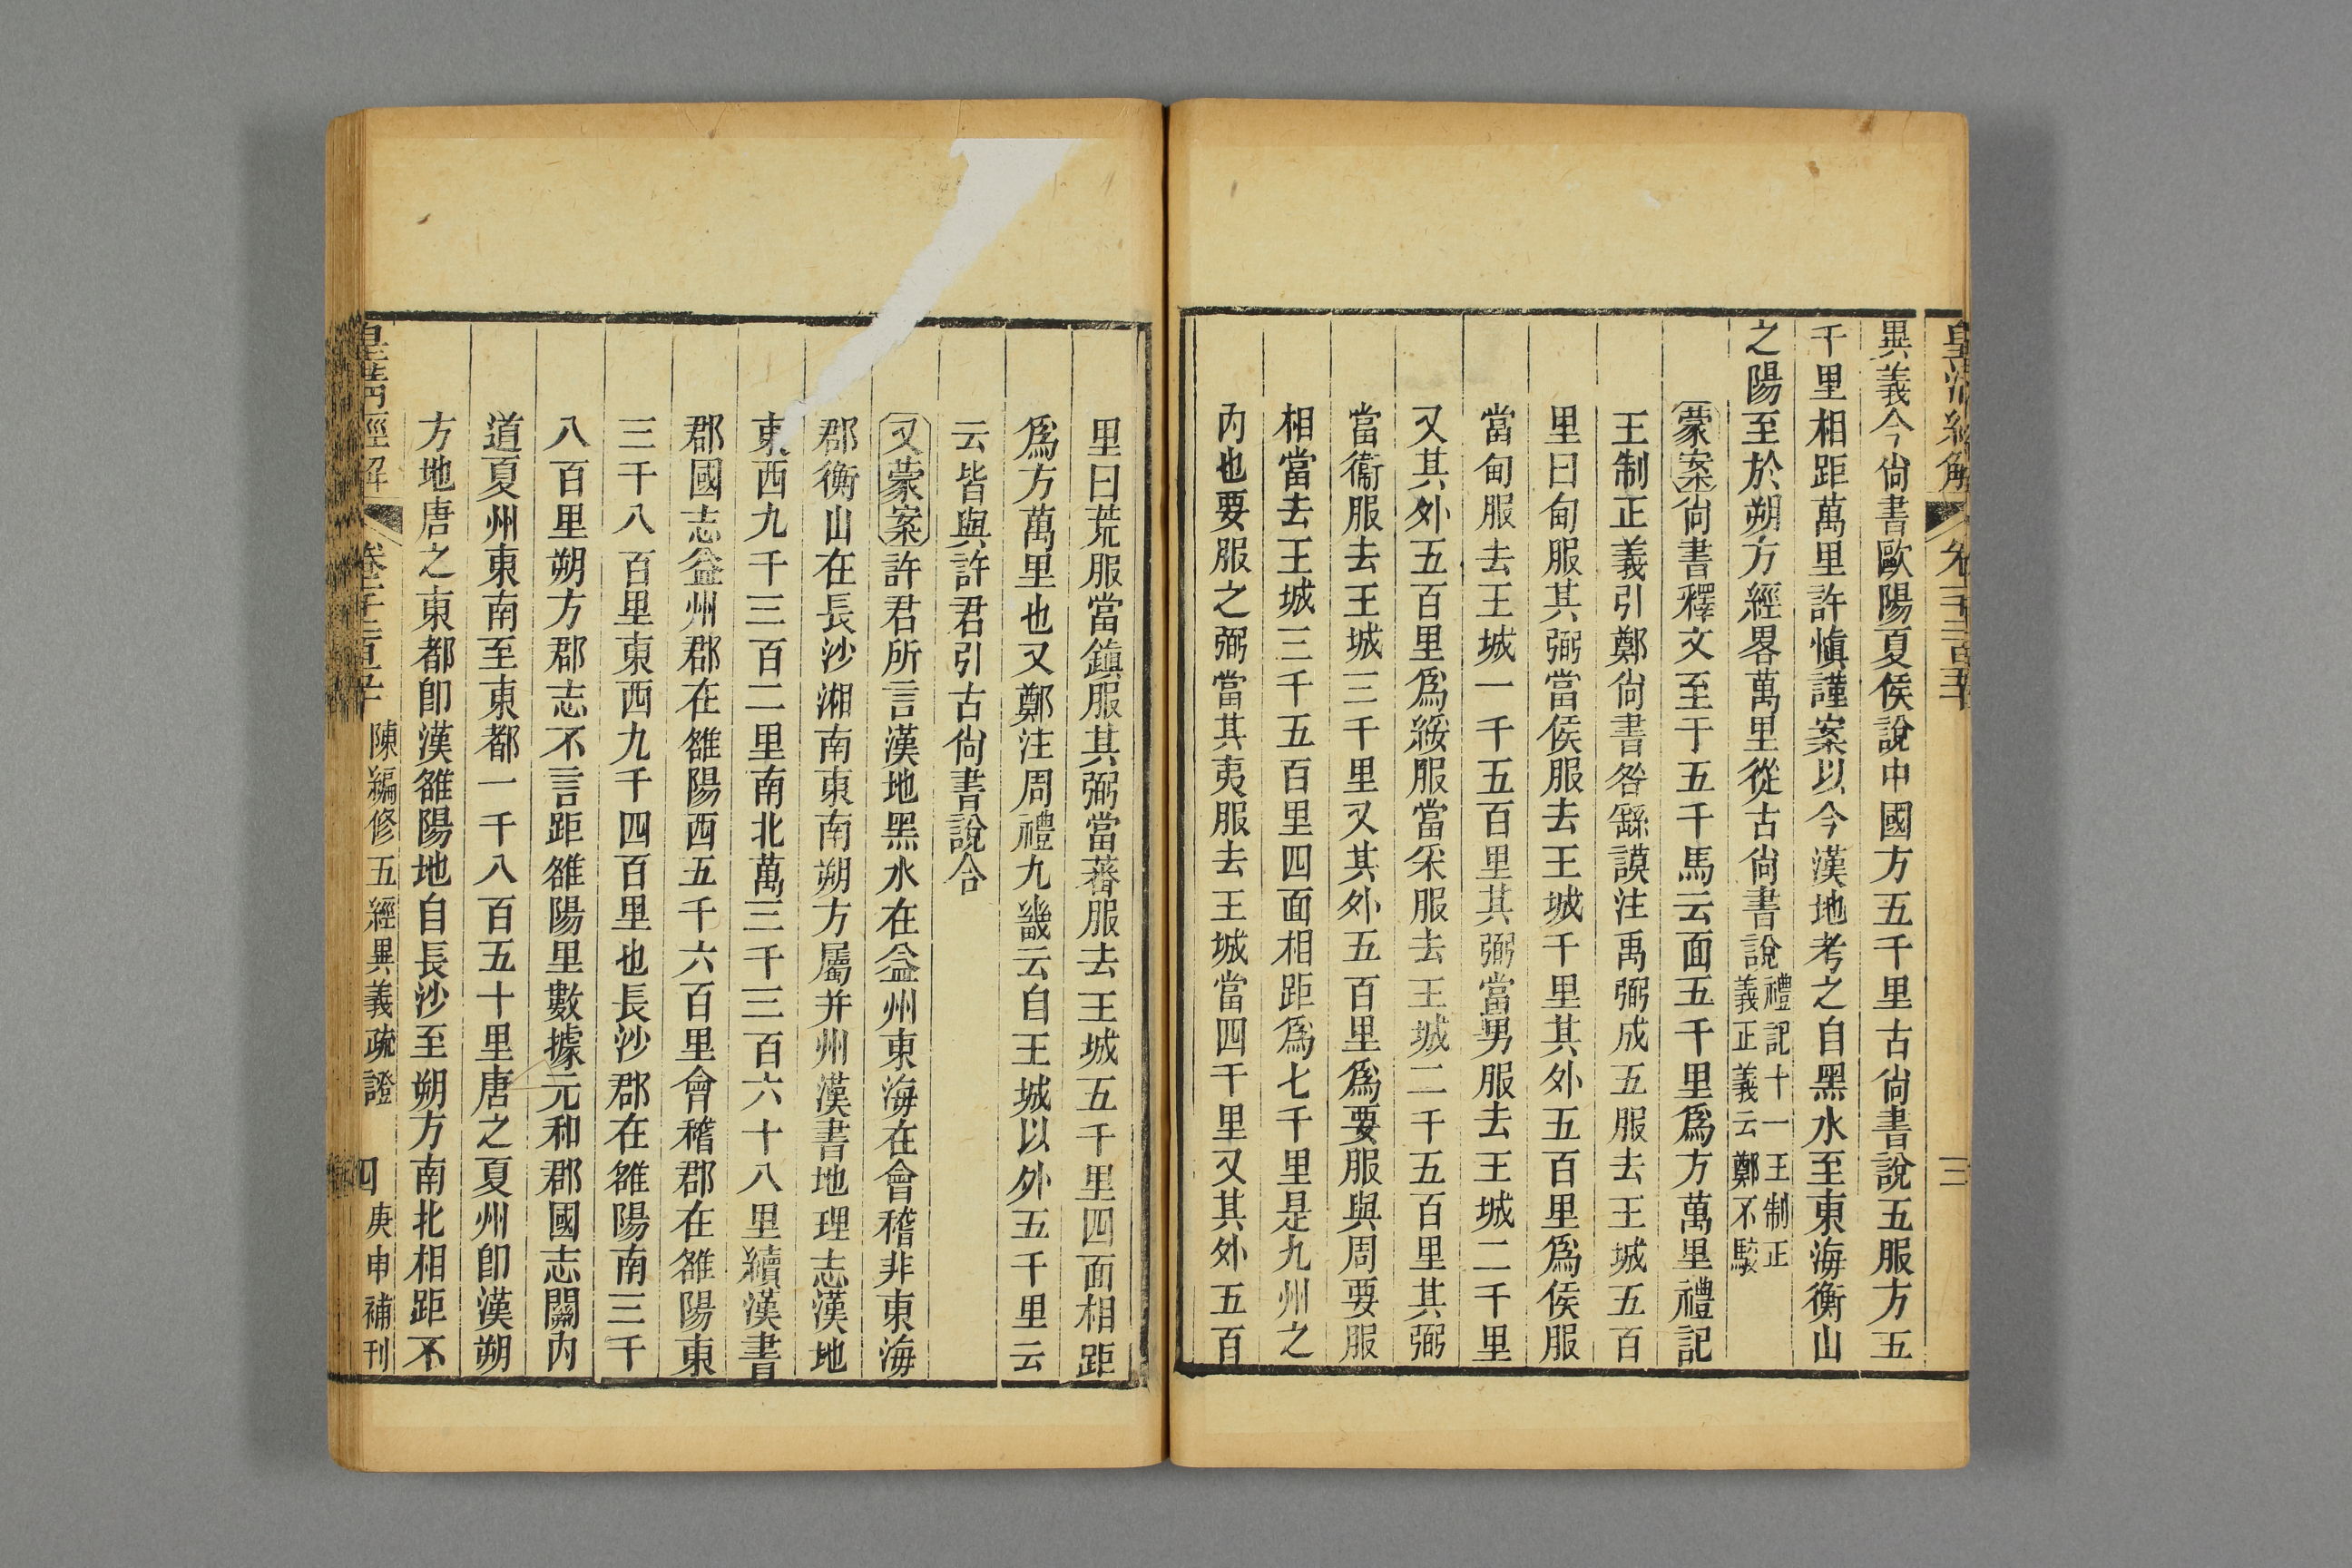 異義今尙書歐陽夏侯說中國方五千里古尙書說五服方五
千里相距萬里許愼謹案以今漢地考之自黑水至東海衡山
之陽至於朔方經畧萬里從古尙書說禮記十一王制正義正義云鄭不駁
蒙案尙書釋文至于五千馬云面五千里爲方萬里禮記
王制正義引鄭尙書咎繇謨注禹弼成五服去王城五百
里曰甸服其弼當侯服去王城千里其外五百里爲侯服
當甸服去王城一千五百里其弼當男服去王城二千里
又其外五百里爲綏服當采服去王城二千五百里其弼
當衞服去王城三千里又其外五百里爲要服與周要服
相當去王城三千五百里四面相距爲七千里是九州之
內也要服之弼當其夷服去王城當四千里又其外五百
里曰荒服當鎭服其弼當蕃服去王城五千里四面相距
爲方萬里也又鄭注周禮九畿云自王城以外五千里云
云皆與許君引古尙書說合
又蒙案許君所言漢地黑水在益州東海在會稽非東海
郡衡山在長沙湘南東南朔方屬并州漢書地理志漢地
東西九千三百二里南北萬三千三百六十八里續漢書
郡國志益州郡在雒陽西五千六百里會稽郡在雒陽東
三千八百里東西九千四百里也長沙郡在雒陽南三千
八百里朔方郡志不言距雒陽里數據元和郡國志關內
道夏州東南至東都一千八百五十里唐之夏州卽漢朔
方地唐之東都卽漢雒陽地自長沙至朔方南北相距不
皇淸經解
陳編修五經異義疏證
四
庚申補刊
皇淸經解
三